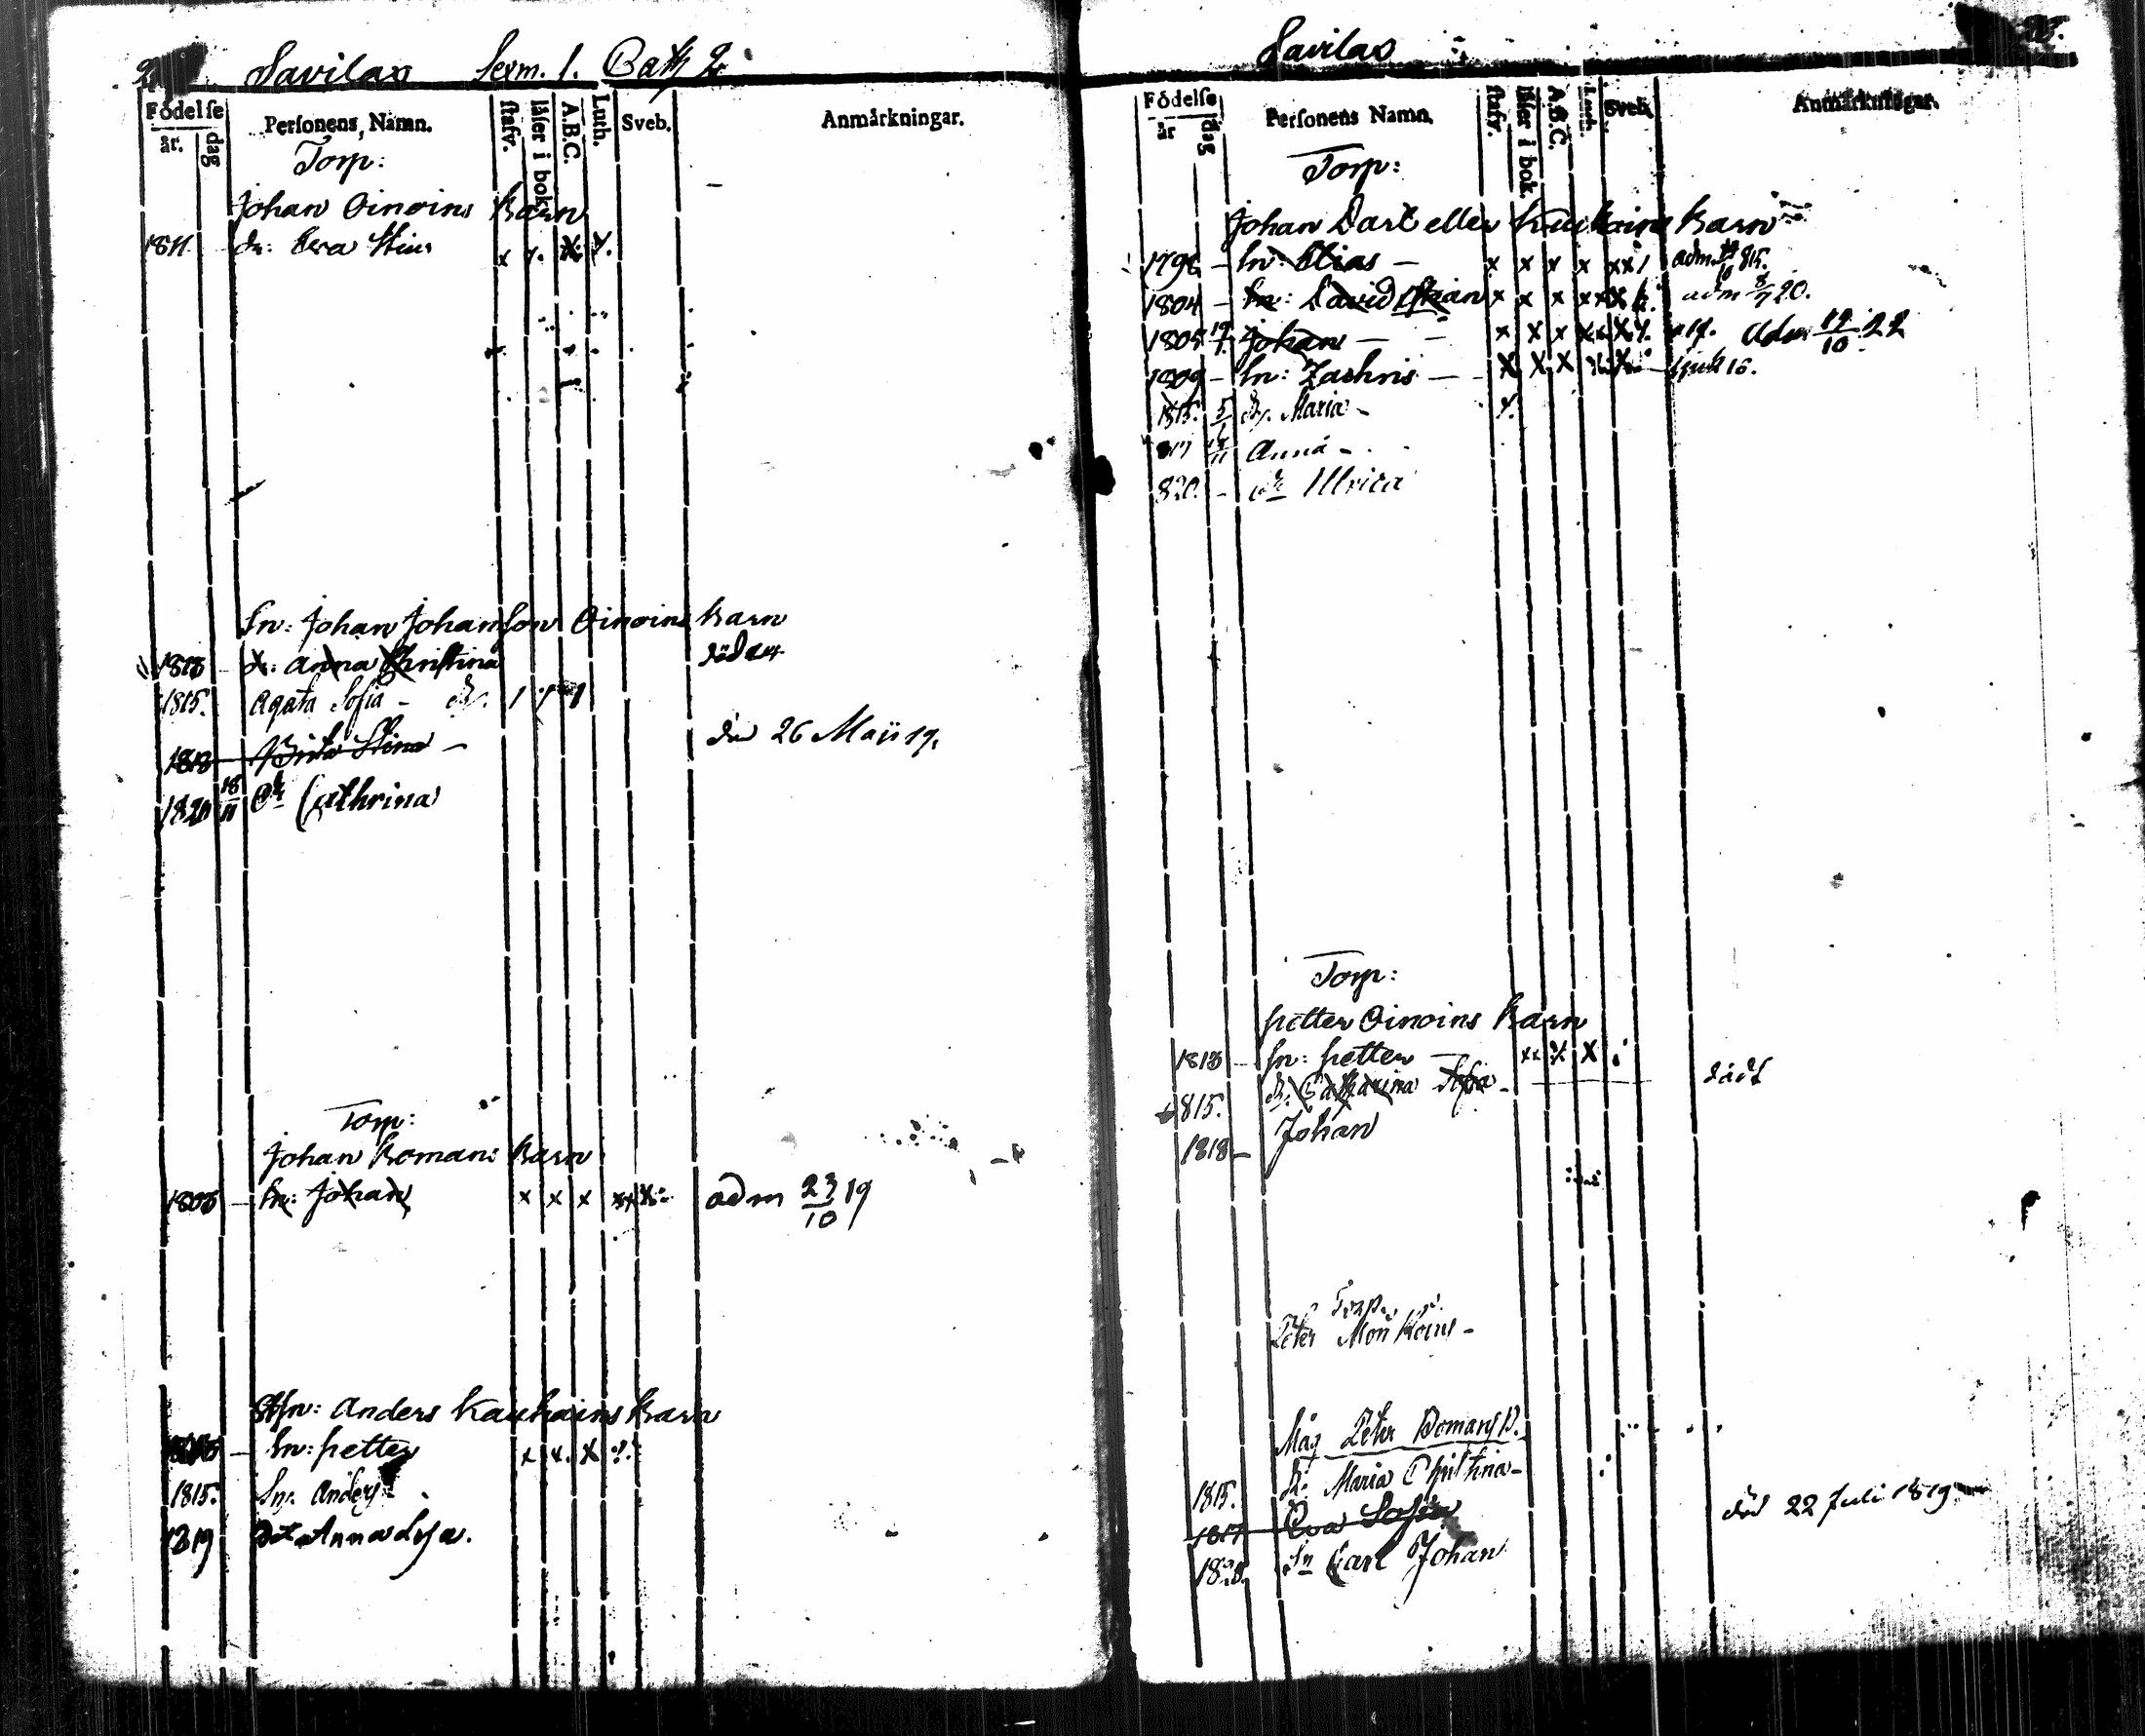 Savilax Serm. 1. Cath 2.
Födelse
år. dag
Personens Namn.
stafv.
läser i bok.
A.B.C.
Luth.
Sveb.
Anmärkningar.
Torp:
Johan Oinoins Barn
1811. dr: Eva Stina x x
Sn: Johan Johansson Oinoins Barn
1813 dr: Anna Christina död
1815. Agata Sofia - dr.
1818 Brita Stina - död 26 Maji 19.
1820 18/11 dr Cathrina
Torp:
Johan Bomans Barn
1803 - Sn: Johan x x x adm 23/10 19
Sn: Anders Kauhains Barn
Sn: Petter x x. X
1815. Sn. Anders
1819 Anna Lisa.
Savilax
Födelse
år dag
Personens Namn.
stafv.
läser i bok.
A.B.C.
Sveb.
Anmärkningar.
Torp:
Johan Dart eller Kauhains Barn
Sn: Elias - x x x x adm 815.
1804 - Sn: David x x x adm 8/7 20.
1805 Johan - x x x adm 19/10 22
1809 - Sn: Zachris - X X X sjuk 16.
1815. dr. Maria -
Anna -
820. - dr Ullrica
Torp:
Petter Oinoins Barn
1813 - Sn: Petter -
815. dr: Catharina Sofia - död
1818 - Johan
Torp.
Peter
Måg Peter Bomans B.
1815. dr: Maria Christina -
1817 Eva Sofia död 22 Juli 1819
Sn Carl Johan